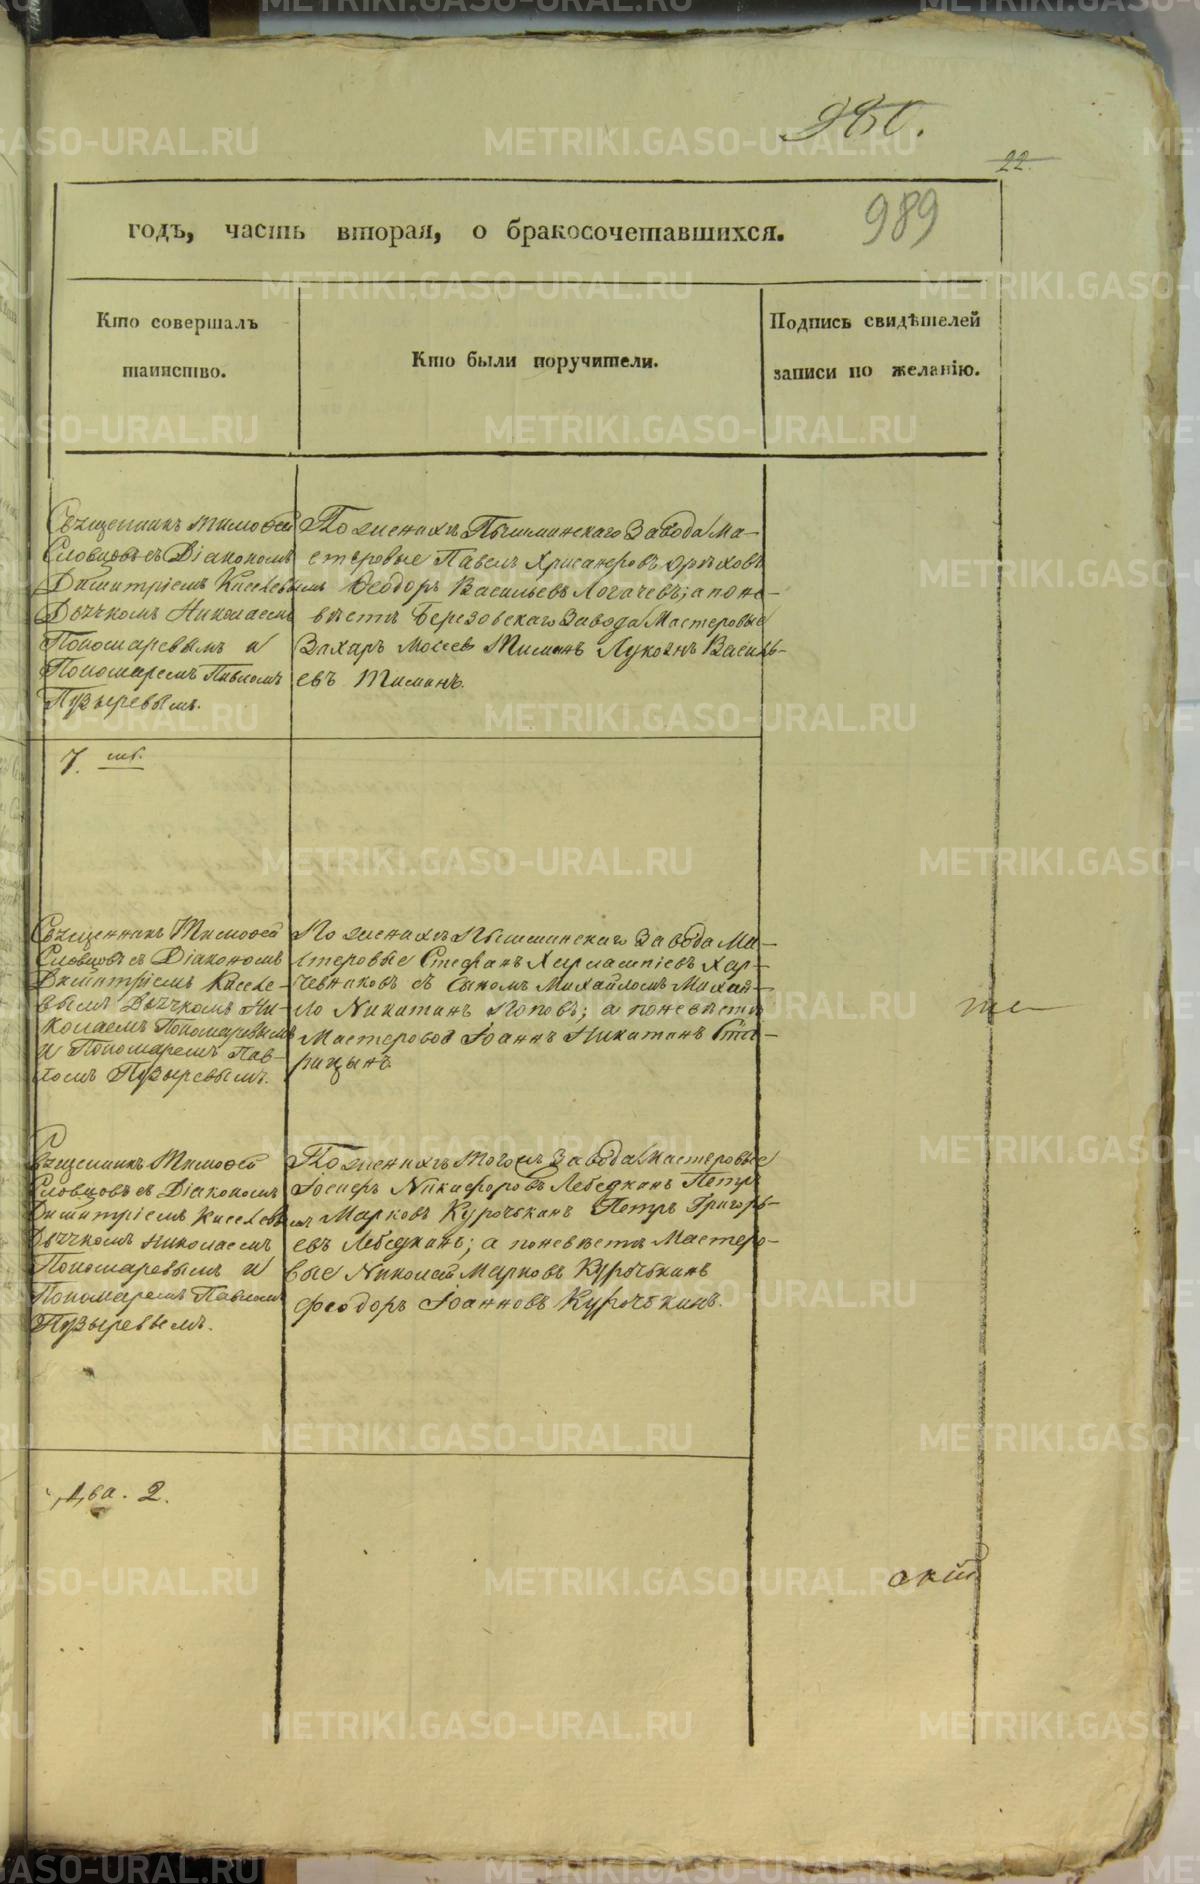 980.
22.
989
годъ, часть вторая, о бракосочетавшихся.
Кто совершалъ
таинство.
Кто были поручители.
Подпись свидѣтелей
записи по желанію.
Священникъ Тимофей
Словцовъ съ Діакономъ
Димитріемъ Киселевымъ
Дьячкомъ Николаемъ
Пономаревымъ и
Пономаремъ Павломъ
Пузыревымъ.
По женихѣ Пышминскаго Завода Ма-
стеровые Павелъ Хрисанфовъ Орѣховъ
Ѳеодоръ Васильевъ Логачевъ; а по не-
вѣстѣ Березовскаго Завода Мастеровые
Захаръ Мосеев Тиминъ Лукоянъ Василь-
евъ Тиминъ.
7.
Священникъ Тимофей
Словцовъ съ Діакономъ
Димитріемъ Киселе-
вымъ Дьячкомъ Ни-
колаемъ Пономаревымъ
и Пономаремъ Пав-
ломъ Пузыревымъ.
По женихѣ Пышминскаго Завода Ма-
стеровые Стефанъ Харлампіевъ Хар-
чевниковъ съ Сыномъ Михайломъ Михай-
ло Никитинъ Поповъ; а по невѣстѣ
Мастеровой Іоаннъ Никитинъ Ста-
рицынъ.
те
Священникъ Тимофей
Словцовъ съ Діакономъ
Димитріемъ Киселевымъ
Дьячкомъ Николаемъ
Пономаревымъ и
Пономаремъ Павломъ
Пузыревымъ.
По женихѣ тогожъ Завода Мастеровые
Іосифъ Никифоровъ Лебедкинъ Петръ
Марковъ Курочькинъ Петръ Григорь-
евъ Лебедкинъ; а по невѣстѣ Мастеро-
вые Николай Марковъ Курочькинъ
Феодоръ Іоанновъ Курочькинъ.
Два. 2.
скій